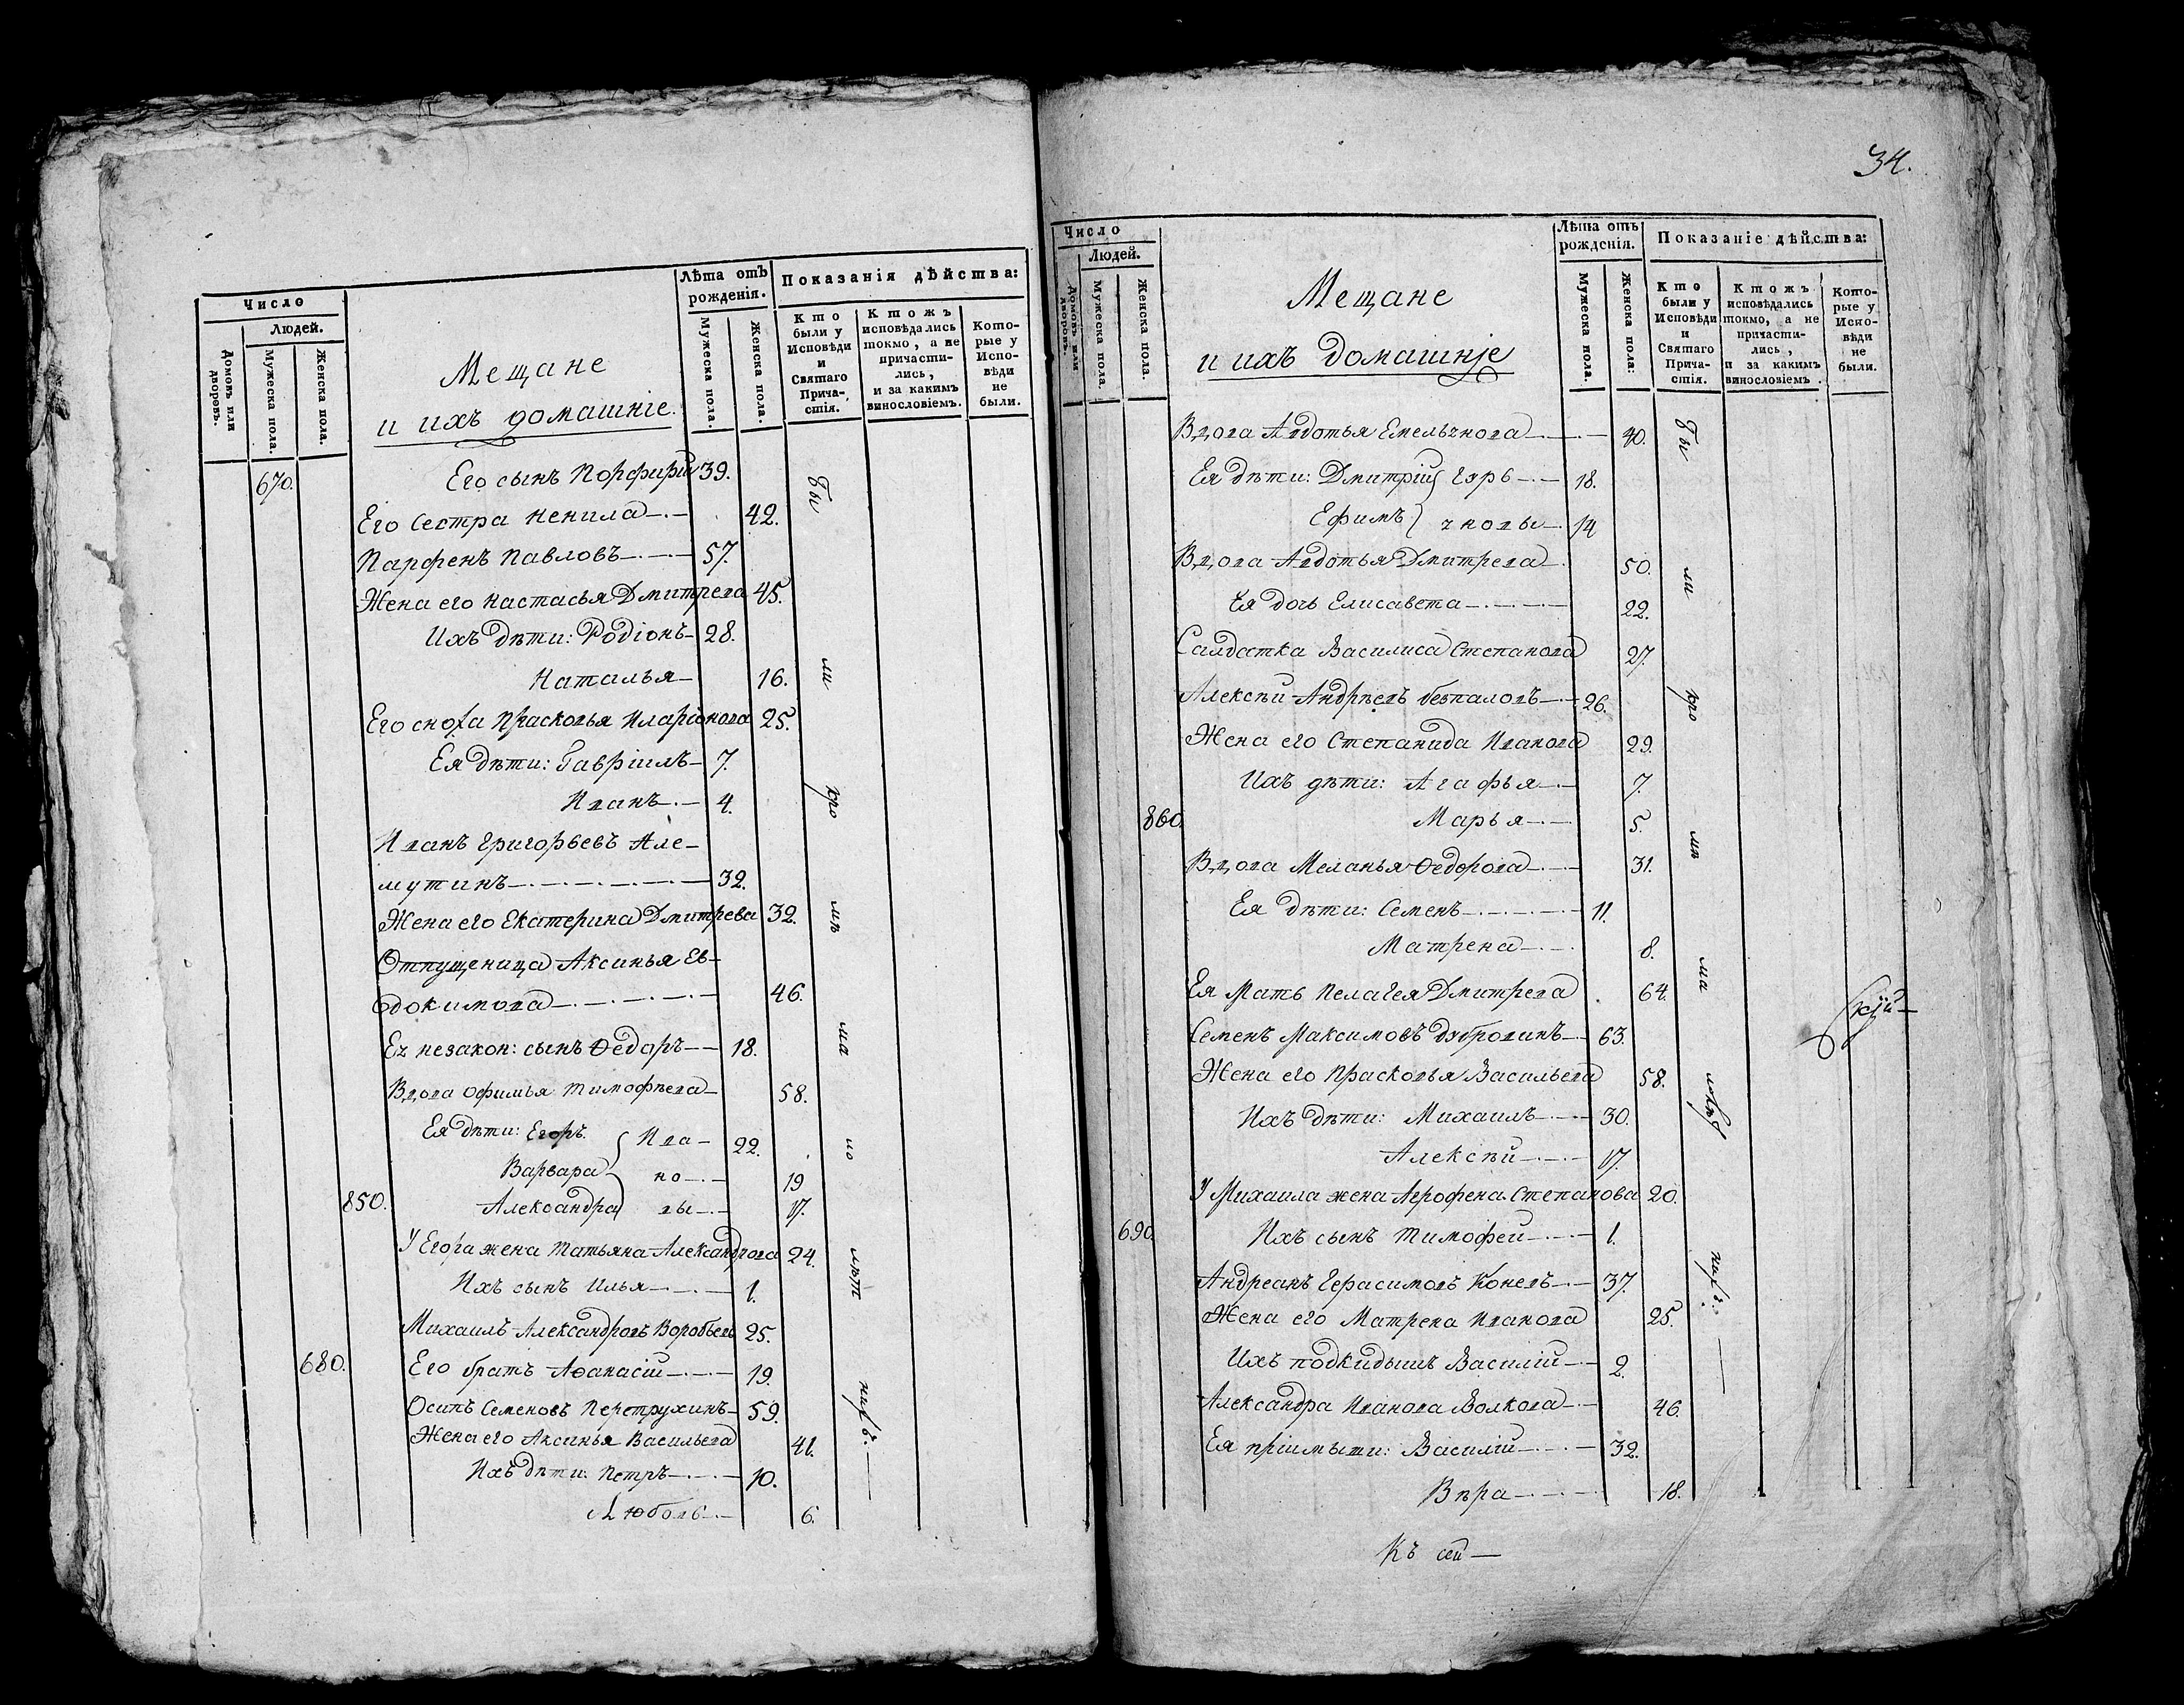 Число
Людей.
Домовъ или дворовъ.
Мужеска пола.
Женска пола.
Мещане
и ихъ домашніе.
Лѣта отъ рожденія.
Мужеска пола.
Женска пола.
Показанія дѣйства:
Кто были у Исповѣди и Святаго Прича-стія.
Ктожъ исповѣдались токмо, а не причасти-лись, и за какимъ винословіемъ.
Кото-рые у Испо-вѣди не были.
670. Его сынъ Порфирій 39.
Его сестра Ненила 42.
Парфенъ Павловъ 57.
Жена его Настасья Дмитрева 45.
Ихъ дѣти: Родіонъ 28.
Наталья 16.
Его сноха Прасковья Иларіонова 25.
Ея дѣти: Гавріилъ 7.
Иванъ 4.
Иванъ Григорьевъ Але-
мутинъ 32.
Жена его Екатерина Дмитрева 32.
Отпущеница Аксинья Ев-
докимова 46.
Ея незакон: сынъ Ѳедоръ 18.
Вдова Офимья Тимофѣева 58.
Ея дѣти: Егоръ Ива- 22.
Варвара но- 19
850. Александра вы 17.
У Егора жена Татьяна Александрова 24.
Ихъ сынъ Илья 1.
Михаилъ Александровъ Воробьевъ 25.
680. Его братъ Аѳанасій 19.
Осипъ Семеновъ Перетрухинъ 59.
Жена его Аксинья Васильева 41.
Ихъ дѣти: Петръ 10.
Любовь 6.
бы
ли
кро
мѣ
ма
ло
лѣт
ныхъ:
34.
Число
Людей.
Домовъ или дворовъ.
Мужеска пола.
Женска пола.
Мещане
и ихъ домашніе
Лѣта отъ рожденія.
Мужеска пола.
Женска пола:
Показаніе дѣйства:
Кто были у Исповѣди и Святаго Прича-стія.
Ктожъ исповѣдались токмо, а не причасти-лись, и за какимъ винословіемъ.
Кото-рые у Испо-вѣди не были.
Вдова Авдотья Емельянова 40.
Ея дѣти: Дмитрій Егрь 18.
Ефимъ яновы 14
Вдова Авдотья Дмитрева 50.
Ея дочь Елисавета 22.
Салдатка Василиса Степанова 27.
Алексѣй Андрѣевъ безпаловъ 26.
Жена его Степанида Иванова 29.
Ихъ дѣти: Агафья 7.
860. Марья 5.
Вдова Меланья Ѳедорова 31.
Ея дѣти: Семенъ 11.
Матрена 8.
Ея мать Пелагея Дмитрева 64.
Семенъ Максимовъ дубровинъ 63.
Жена его Прасковья Васильева 58.
Ихъ дѣти: Михаилъ 30.
Алексѣй 17.
У Михаила жена Агрофена Степанова 20.
690. Ихъ сынъ Тимофей 1.
Андреанъ Герасимовъ Коневъ 37.
Жена его Матрена Иванова 25.
Ихъ подкидышъ Василій 2.
Александра Иванова Волкова 46.
Ея пріимыши: Василій 32.
Вѣра 18.
бы
ли
кро
мѣ
ма
ныхъ:
скій
Къ сей